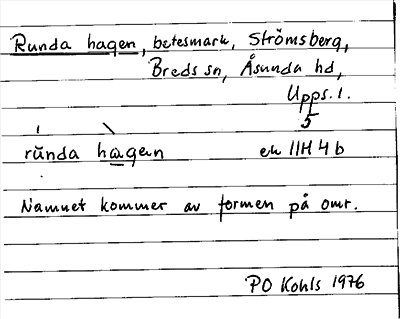 Runda hagen, betesmark, Strömsberg,
Breds sn, Åsunda hd,
Upps. l.
5
rŭnda hagen ek 11H 4 b
Namnet kommer av formen på omr.
PO Kohls 1976